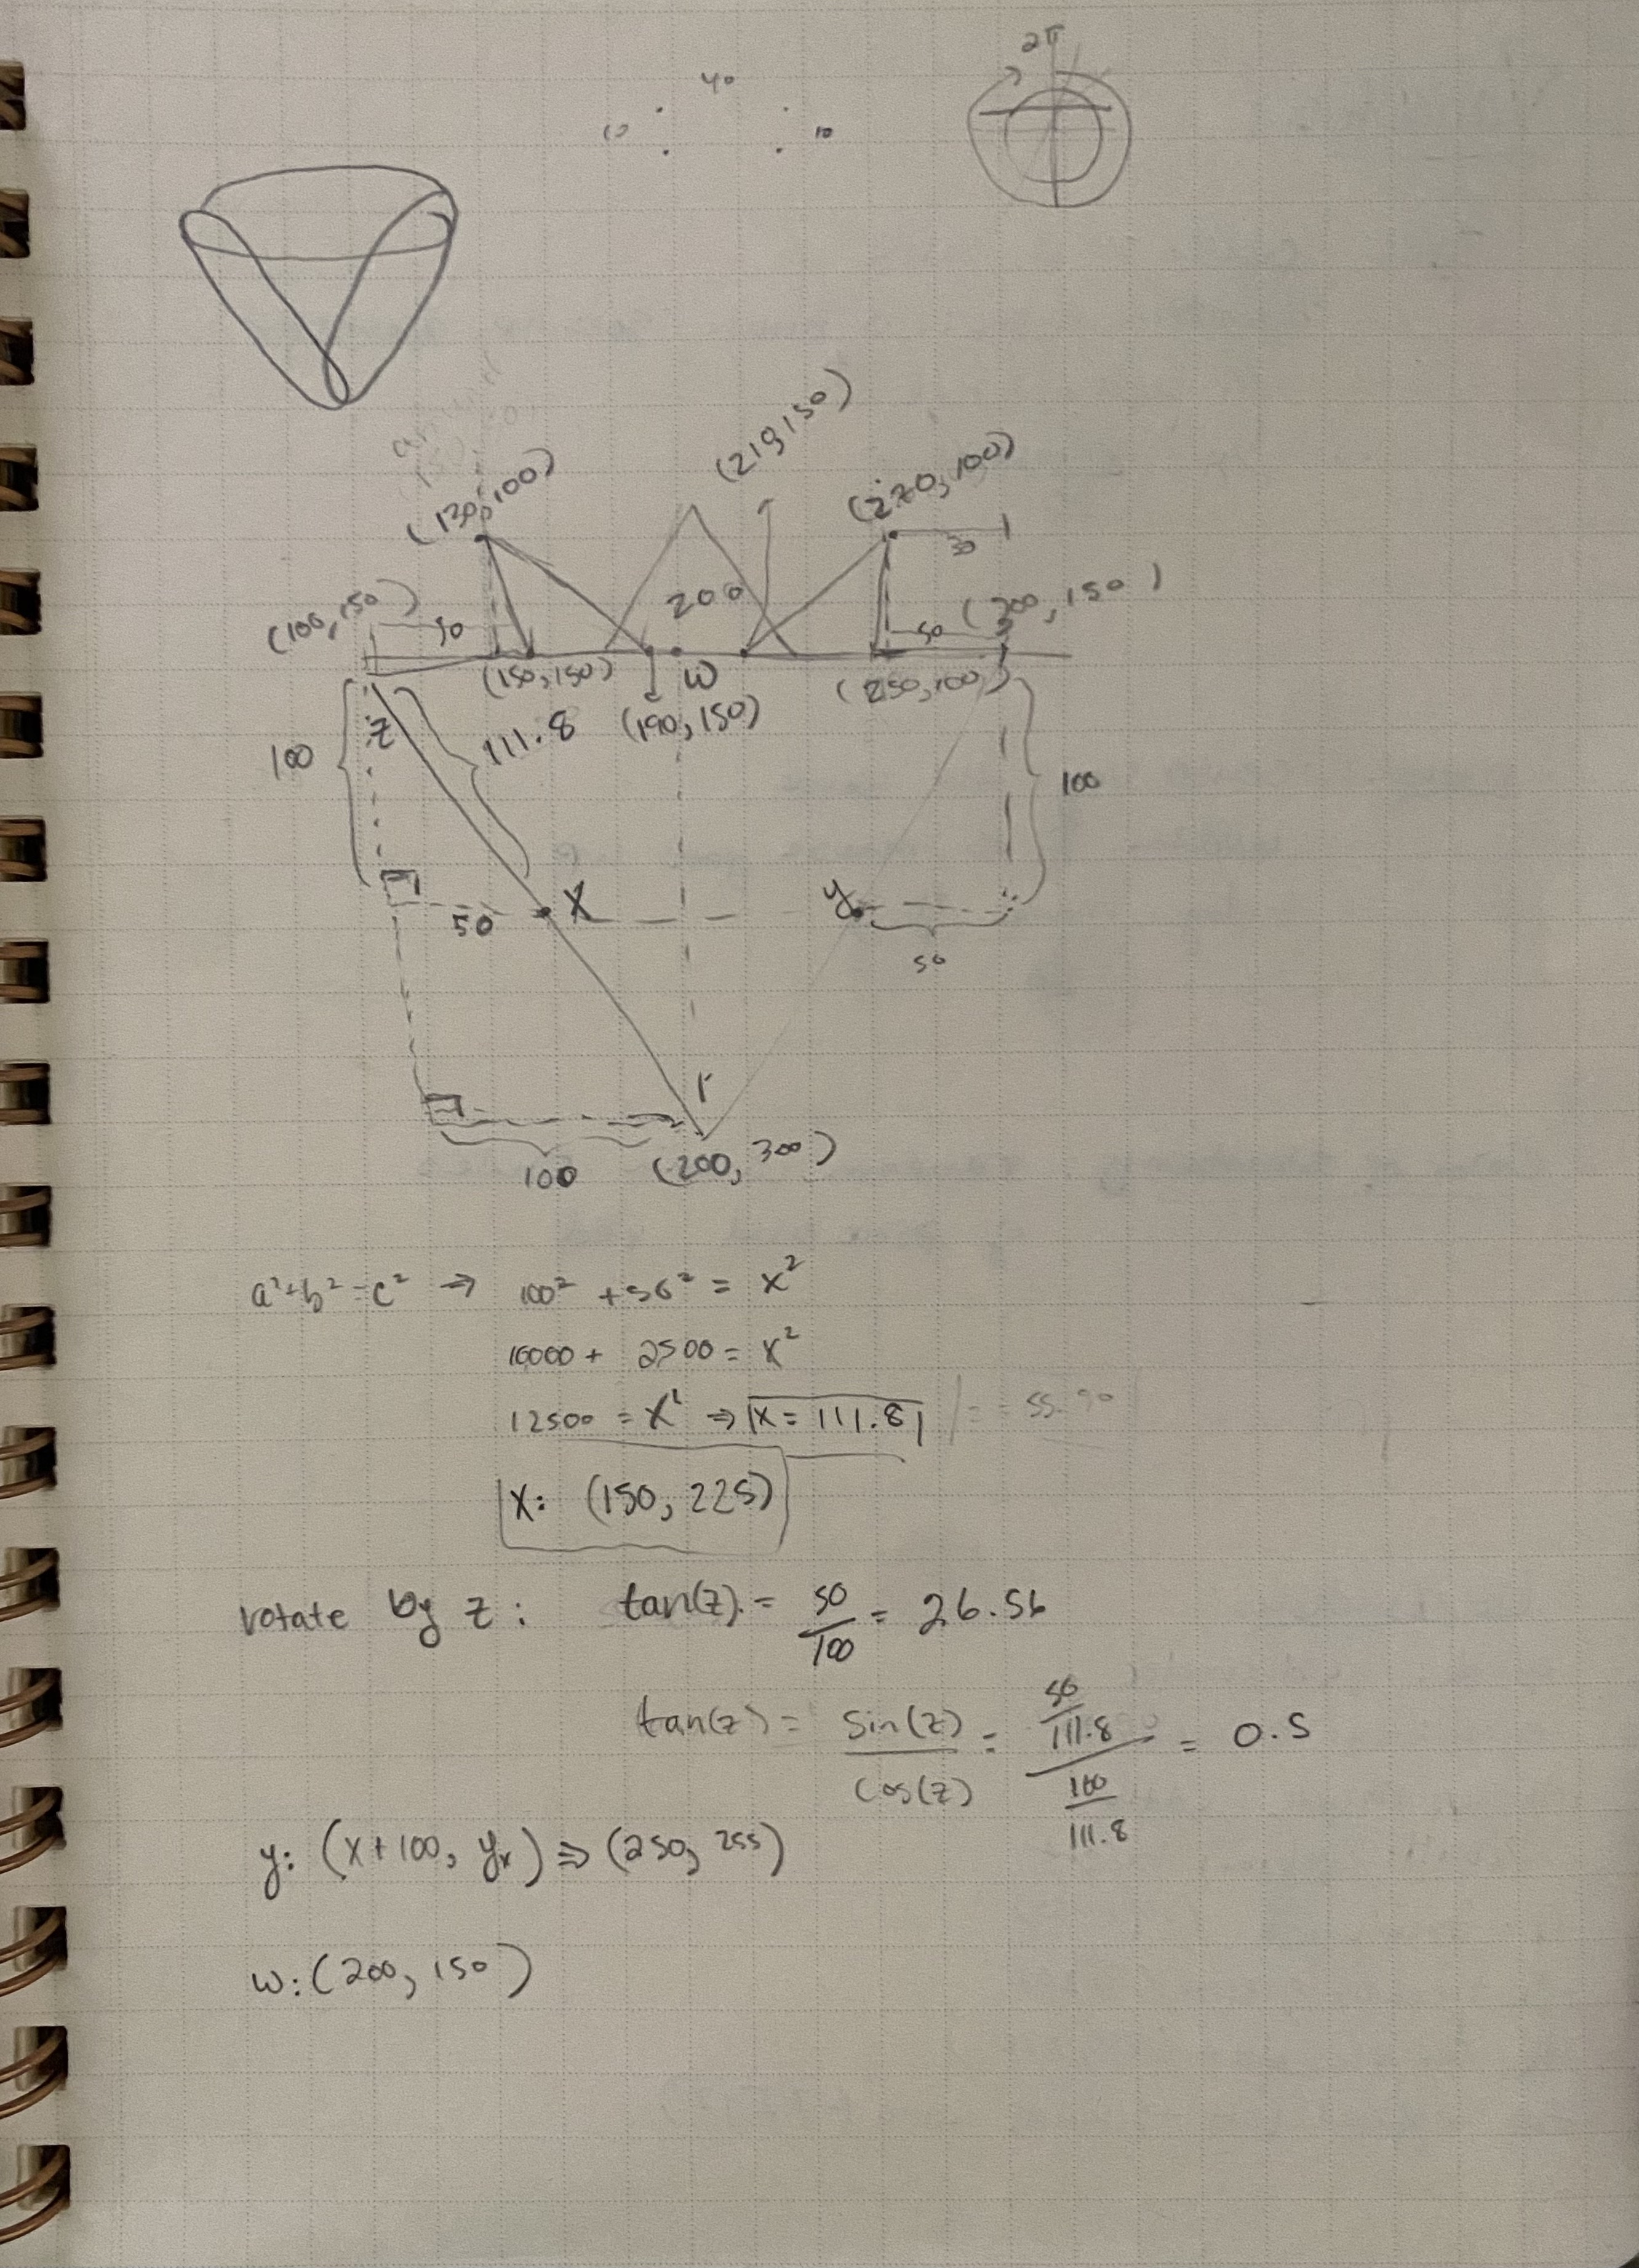 2π
40
10 10
(219,150)
(130,100) (270,100)
30
(100,150) 50 200 50 (300,150)
(150,150) w (250,100)
z 111.8 (190,150)
100 100
50 X y
50
r
100 (200, 300)
a²+b²=c² ⇒ 100² + 50² = x²
10000 + 2500 = x²
12500 = x² ⇒ x = 111.8 = 55.90
X: (150, 225)
rotate by z: tan(z) = 50/100 = 26.56
tan(z) = sin(z)/cos(z) = 50/111.8 / 100/111.8 = 0.5
y: (x+100, yx) ⇒ (250, 255)
w: (200, 150)